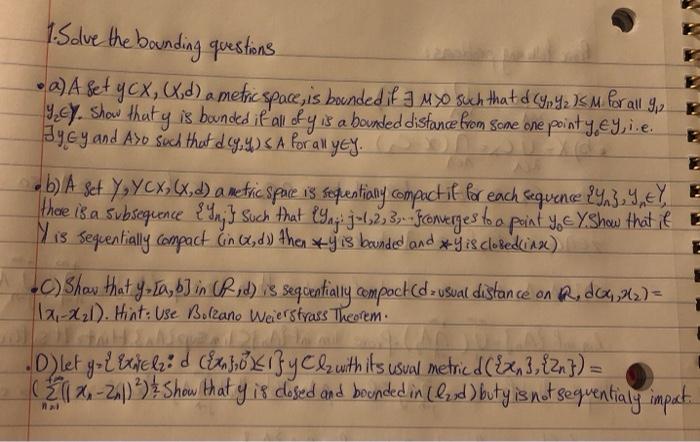 1. Solve the bounding questions
• a) A set y⊂X, (X,d) a metric space, is bounded if ∃ M>0 such that d(y₁,y₂)≤M for all y₁,
y₂∈Y. Show that y is bounded if all of y is a bounded distance from some one point y₀∈y, i.e.
∃y₀∈y and A>0 such that d(y,y₀)≤A for all y∈Y.
• b) A set Y, Y⊂X, (X,d) a metric space is sequentially compact if for each sequence {yₙ}, yₙ∈Y,
there is a subsequence {yₙⱼ} such that {yₙⱼ: j=1,2,3,...} converges to a point y₀∈Y. Show that if
Y is sequentially compact (in (x,d)) then *y is bounded and *y is closed (in x)
• C) Show that y=[a,b] in (R,d) is sequentially compact (d=usual distance on R, d(x₁,x₂)=
|x₁-x₂|). Hint: Use Bolzano Weierstrass Theorem.
• D) let y={{xₙ}∈ℓ₂: d({xₙ},0⃗)≤1} y⊂ℓ₂ with its usual metric d({xₙ},{zₙ})=
(∑ₙ₌₁^∞(|xₙ-zₙ|)²)^½. Show that y is closed and bounded in (ℓ₂,d) but y is not sequentialy